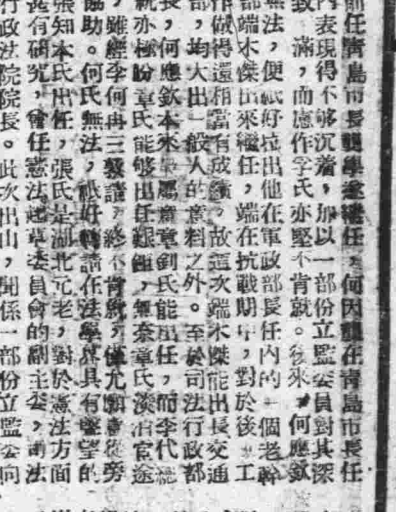 前任青島市長龔學遂繼任，何因龔在青島市長任
內表現得不够沉着，加以一部份立監委員對其深
致不滿，而應作孚氏亦堅不肯就。後來，何應欽
無法，便祇好拉出他在軍政部長任內的一個老幹
部端木傑出來繼任，端在抗戰期中，對於後方工
作做得還相當有成績，故這次端木傑能出長交通
部，均大出一般人的意料之外。至於司法行政部
長，何應欽本來屬意章釗氏能出任，而李代總
統亦極盼章氏能够出任艱鉅，無奈章氏淡泊官途
，雖經李何再三敦請，終不肯就，僅允願意從旁
協助。何氏無法，祇好轉請在法學界具有聲望的
張知本氏出任，張氏是湖北元老，對於憲法方面
甚有研究，曾任憲法起草委員會的副主委，司法
行政法院院長。此次出山，聞係一部份立監委同